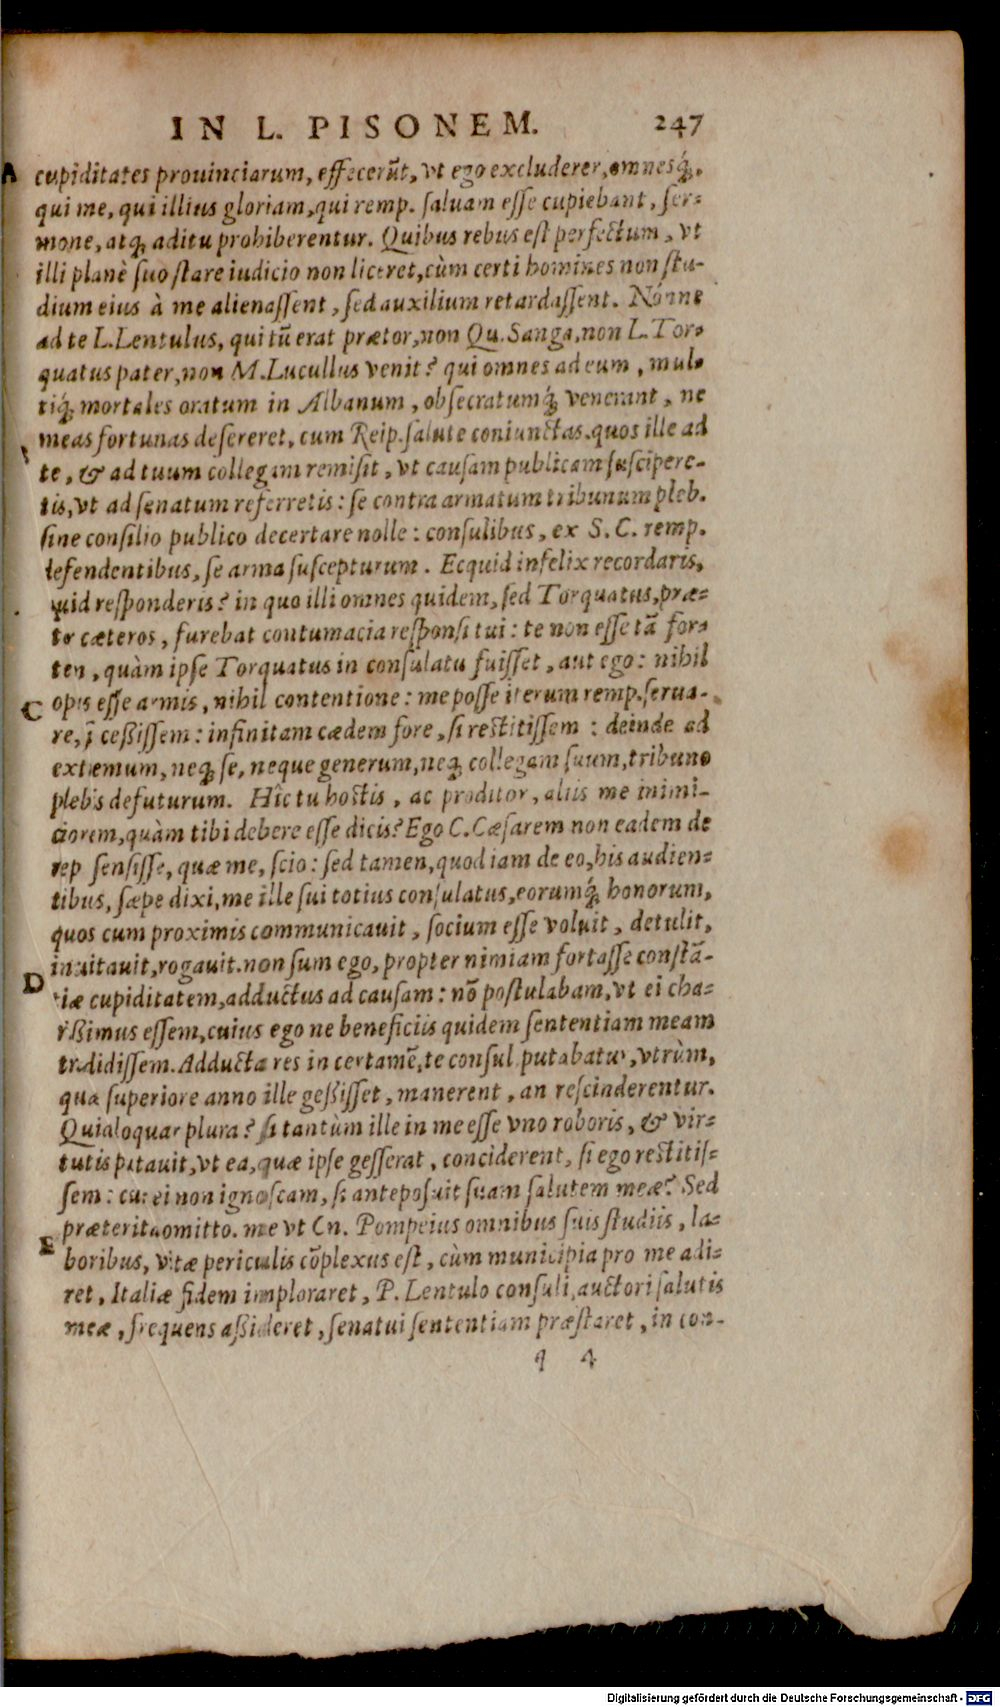 IN L. PISONEM. 247
A cupiditates prouinciarum, effecerūt, vt ego excluderer, omnesq́;
qui me, qui illius gloriam, qui remp. saluam esse cupiebant, ser-
mone, atq; aditu prohiberentur. Quibus rebus est perfectum, vt
illi planè suo stare iudicio non liceret, cùm certi homines non stu-
dium eius à me alienassent, sed auxilium retardassent. Nónne
ad te L. Lentulus, qui tū erat prætor, non Qu. Sanga, non L. Tor-
quatus pater, non M. Lucullus venit? qui omnes ad eum, mul-
tiq́; mortales oratum in Albanum, obsecratumq́; venerant, ne
meas fortunas desereret, cum Reip. salute coniunctas. quos ille ad
te, & ad tuum collegam remisit, vt causam publicam suscipere-
tis, vt ad senatum referretis: se contra armatum tribunum pleb.
sine consilio publico decertare nolle: consulibus, ex S. C. remp.
defendentibus, se arma suscepturum. Ecquid infelix recordaris,
quid responderis? in quo illi omnes quidem, sed Torquatus, præ-
ter cæteros, furebat contumacia responsi tui: te non esse tā for-
tem, quàm ipse Torquatus in consulatu fuisset, aut ego: nihil
C opus esse armis, nihil contentione: me posse iterum remp. serua-
re, si cessissem: infinitam cædem fore, si restitissem: deinde ad
extremum, neq; se, neque generum, neq; collegam suum, tribuno
plebis defuturum. Hîc tu hostis, ac proditor, aliis me inimi-
ciorem, quàm tibi debere esse dicis? Ego C. Cæsarem non eadem de
rep sensisse, quæ me, scio: sed tamen, quod iam de eo, his audien-
tibus, sæpe dixi, me ille sui totius consulatus, eorumq́; honorum,
quos cum proximis communicauit, socium esse voluit, detulit,
inuitauit, rogauit. non sum ego, propter nimiam fortasse constā-
D tiæ cupiditatem, adductus ad causam: nō postulabam, vt ei cha-
rissimus essem, cuius ego ne beneficiis quidem sententiam meam
tradidissem. Adducta res in certamē, te consule putabatur, vtrùm,
quæ superiore anno ille gessisset, manerent, an rescinderentur.
Quid loquar plura? si tantùm ille in me esse vno roboris, & vir-
tutis putauit, vt ea, quæ ipse gesserat, conciderent, si ego restitis-
sem: cur ei non ignoscam, si anteposuit suam salutem meæ? Sed
E præterita omitto. me vt Cn. Pompeius omnibus suis studiis, la-
boribus, vitæ periculis cōplexus est, cùm municipia pro me adi-
ret, Italiæ fidem imploraret, P. Lentulo consuli, auctori salutis
meæ, frequens assideret, senatui sententiam præstaret, in con-
q 4
Digitalisierung gefördert durch die Deutsche Forschungsgemeinschaft - DFG